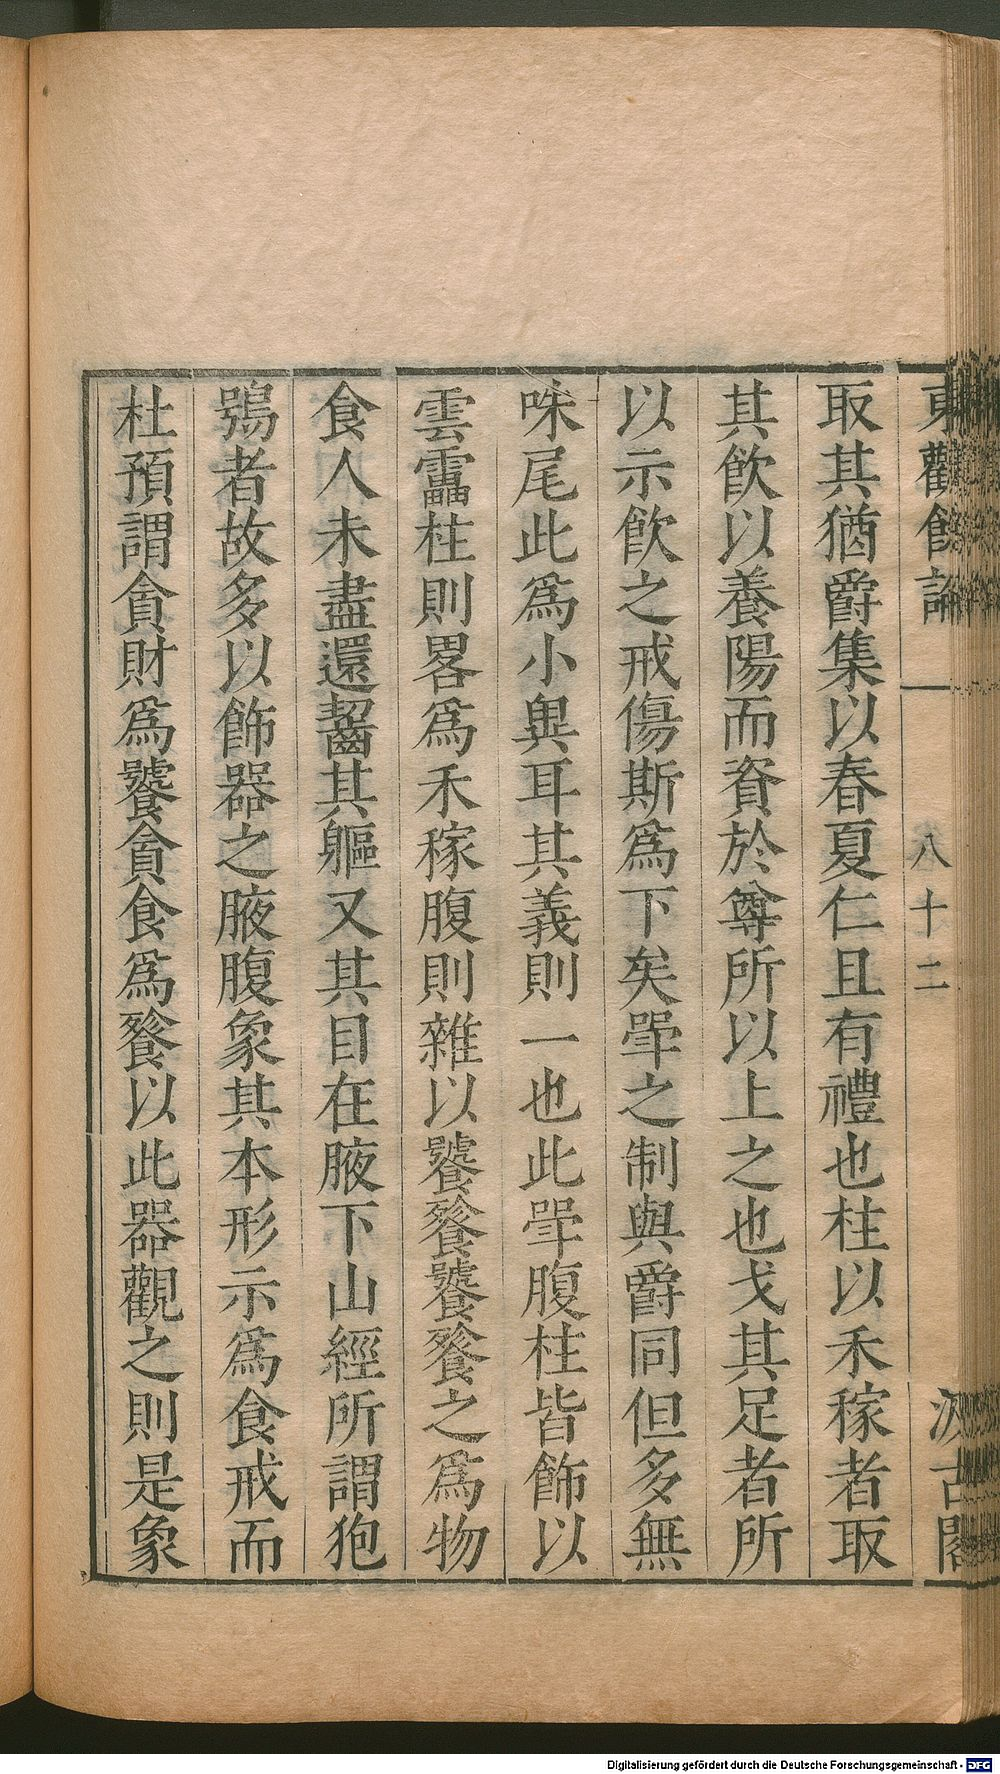 東觀餘論
八十二
汲古閣
取其猶爵集以春夏仁且有禮也柱以禾稼者取
其飮以養陽而資於尊所以上之也戈其足者所
以示飮之戒傷斯爲下矣斝之制與爵同但多無
咮尾此爲小異耳其義則一也此斝腹柱皆飾以
雲靁柱則畧爲禾稼腹則雜以饕餮饕餮之爲物
食人未盡還齧其軀又其目在腋下山經所謂狍
鴞者故多以飾器之腋腹象其本形示爲食戒而
杜預謂貪財爲饕貪食爲餮以此器觀之則是象
Digitalisierung gefördert durch die Deutsche Forschungsgemeinschaft - DFG